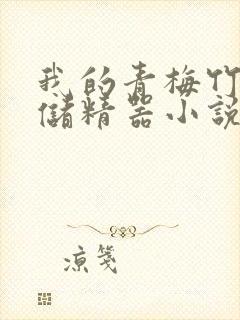 我的青梅竹
儲精器小說
凉笺